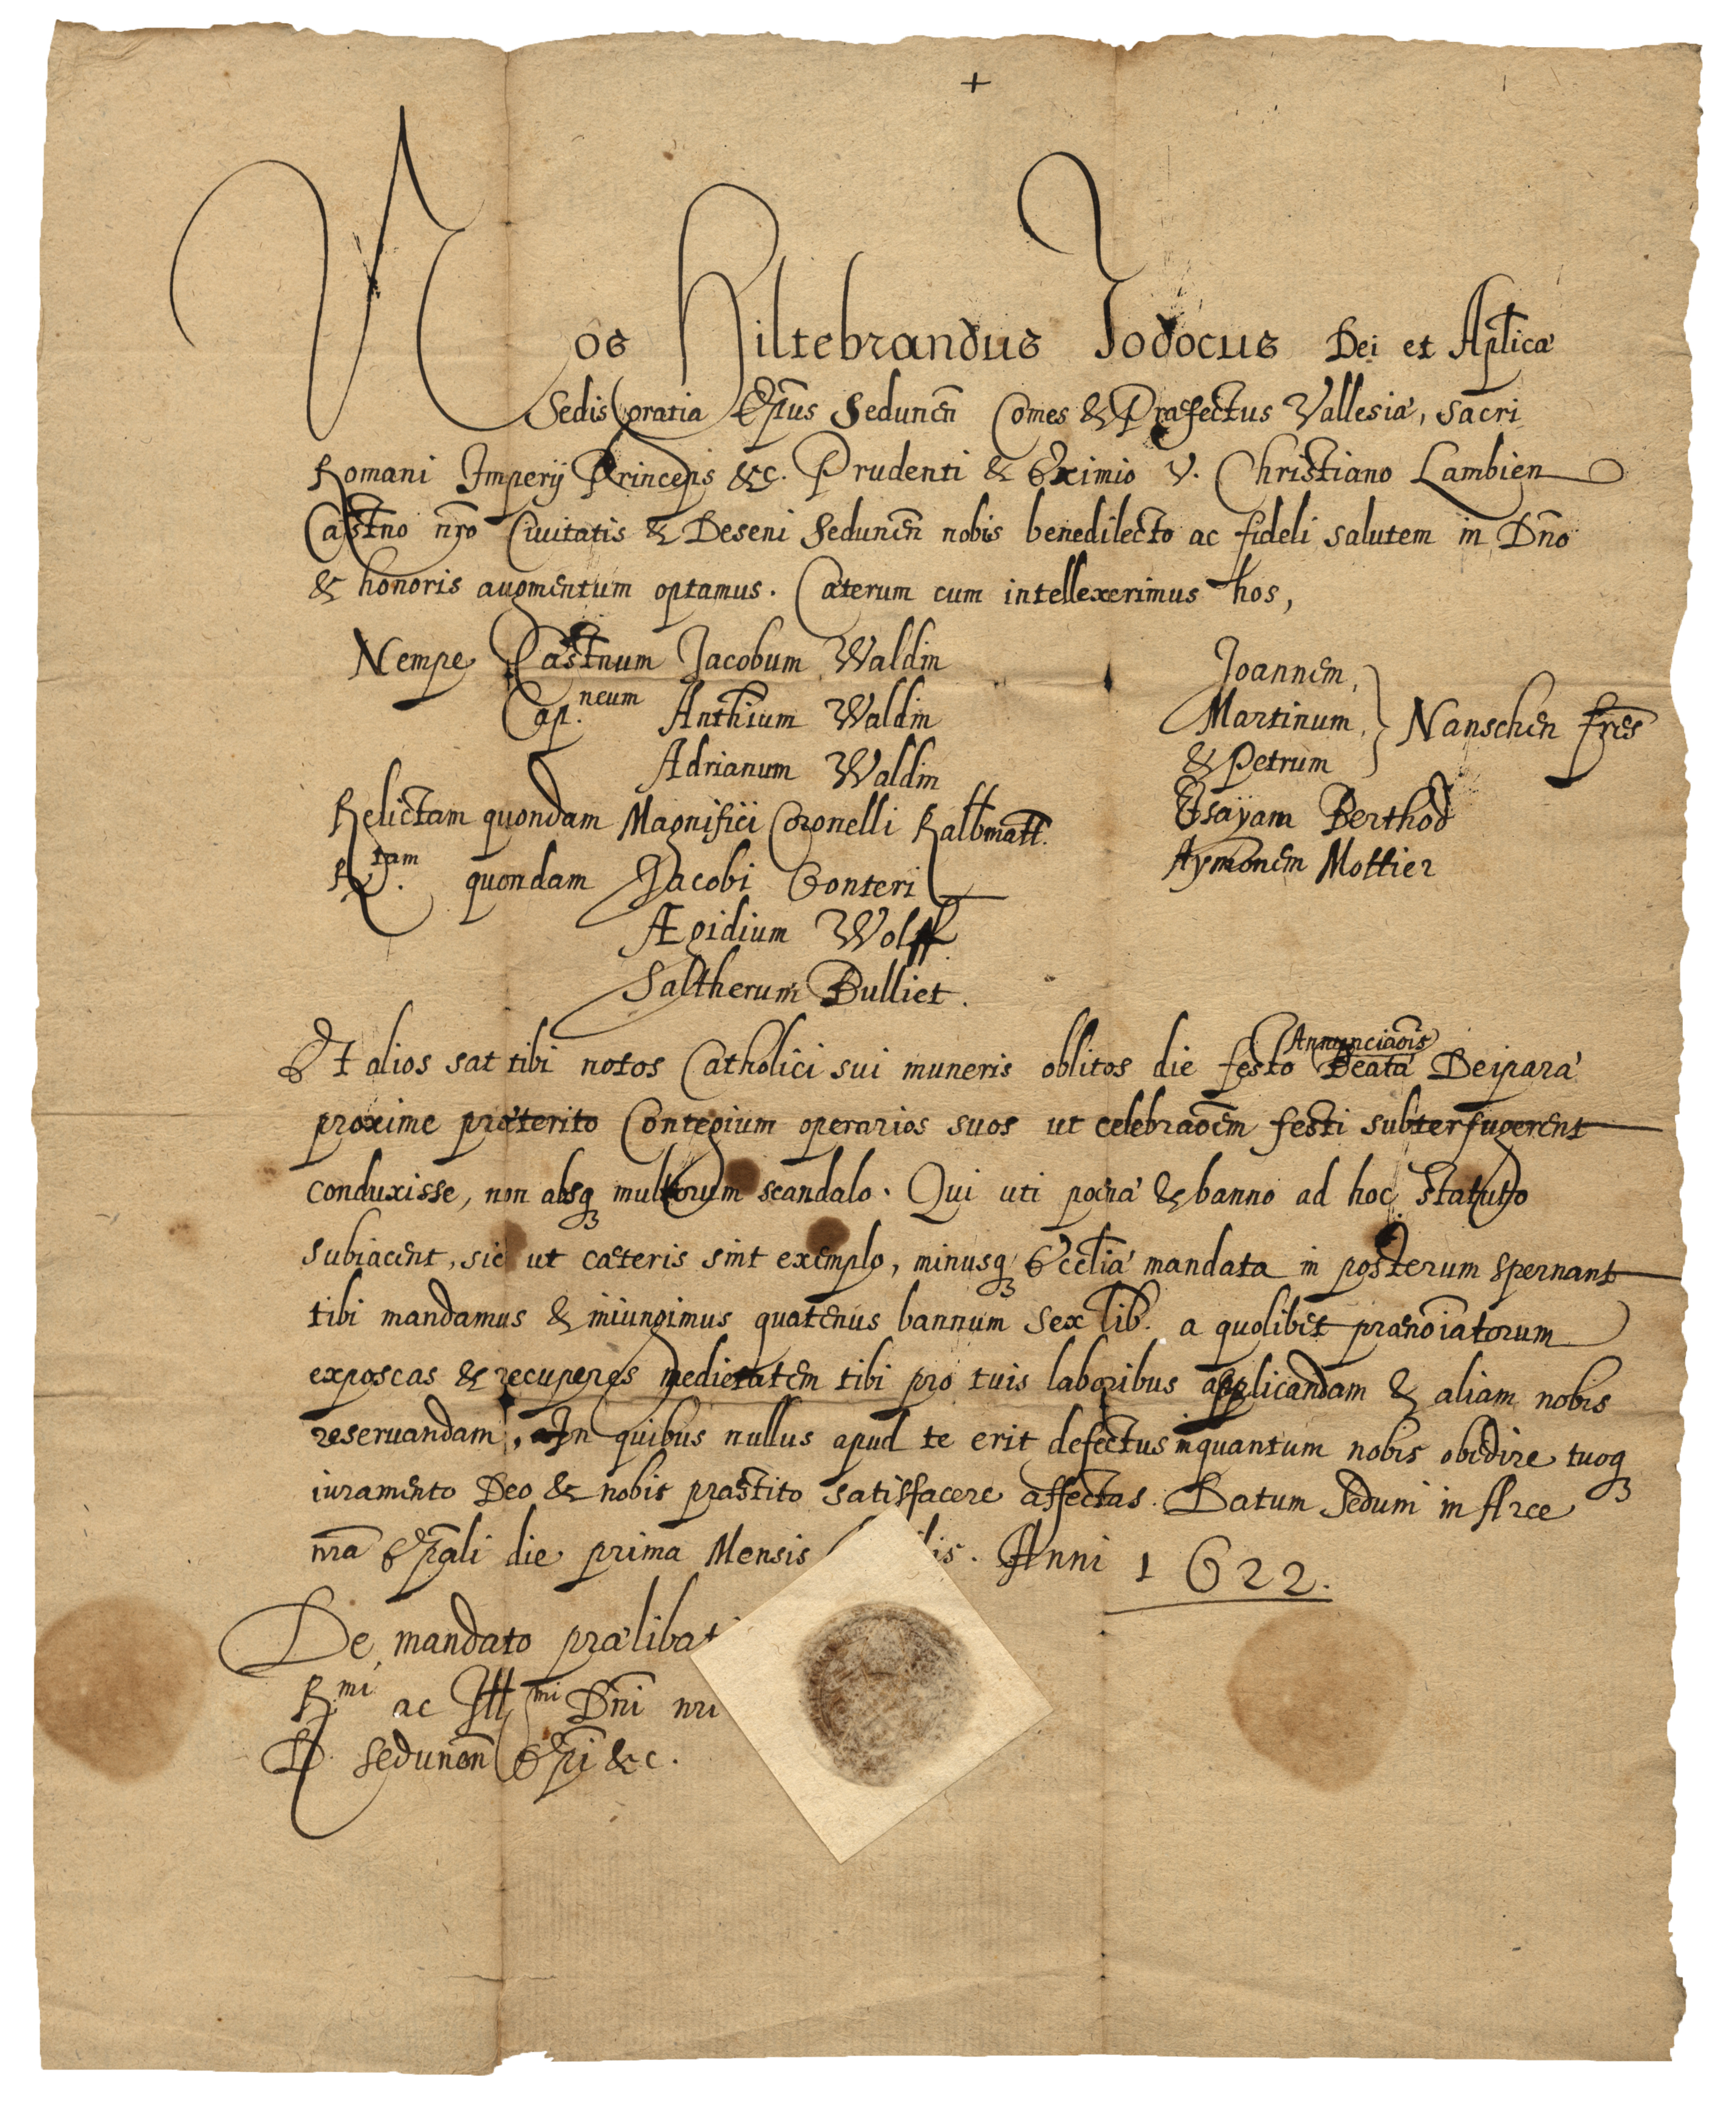 +
Nos Hiltebrandus Jodocus Dei et Aplicæ
Sedis Gratia Epus Sedunen Comes & Præfectus Vallesiæ, Sacri
Romani Imperij Princeps &c. Prudenti & Eximio V. Christiano Lambien
Castno nro Civitatis & Deseni Sedunen nobis benedilecto ac fideli salutem in Dno
& honoris augmentum optamus. Cæterum cum intellexerimus hos,
Nempe Castnum Jacobum Waldin
Cap.neum Anthium Waldin
Adrianum Waldin
Relictam quondam Magnifici Coronelli Kalbmatt.
R.tam quondam Jacobi Gonteri
Ægidium Wolff
Saltherum Bulliet.
Joannem,
Martinum, Nanschen fres
& Petrum
Esayam Berthod
Aymonem Mottier
Et alios sat tibi notos Catholici sui muneris oblitos die festo Annunciaois Beatæ Deiparæ
proxime præterito Contegium operarios suos ut celebraoem festi subterfugerent
conduxisse, non absq multorum scandalo. Qui uti poenæ & banno ad hoc statuto
subiacent, sic ut cæteris sint exemplo, minusq Ecctiæ mandata in posterum spernant
tibi mandamus & iniungimus quatenus bannum sex lib. a quolibet prænoiatorum
exposcas & recuperes medietatem tibi pro tuis laboribus applicandam & aliam nobis
reservandam, In quibus nullus apud te erit defectus inquantum nobis obedire tuoq
iuramento Deo & nobis præstito satisfacere affectas. Datum Seduni in Arce
nra Epali die prima Mensis Anni 1622.
De mandato prælibati
R.mi ac Ill.mi Dni nri
D. Sedunen Epi &c.